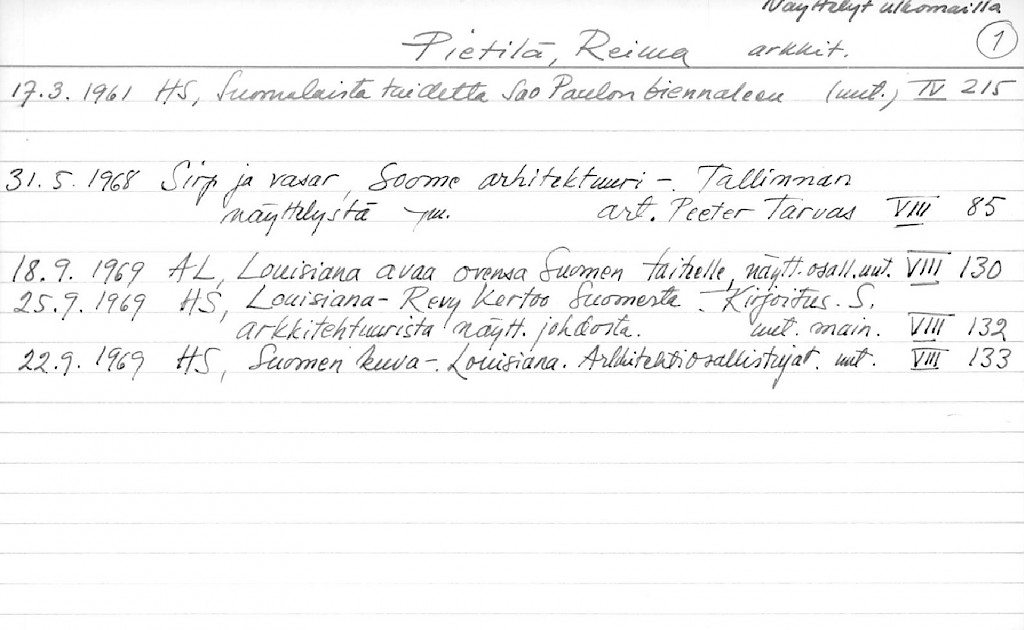 Näyttelyt ulkomailla
Pietilä, Reima arkkit. 1
17.3. 1961 HS, Suomalaista taidetta Sao Paulon biennaleen (uut.) IV 215
31.5. 1968 Sirp ja vasar, Soome arhitektuuri -. Tallinnan
näyttelystä art. Peeter Tarvas VIII 85
18.9. 1969 AL, Louisiana avaa ovensa Suomen taiteelle, näytt.osall.uut. VIII 130
25.9. 1969 HS, Louisiana-Revy kertoo Suomesta -. Kirjoitus S.
arkkitehtuurista näytt. johdosta. uut. main. VIII 132
22.9. 1969 HS, Suomen kuva -. Louisiana. Arkkitehtiosallistujat. uut. VIII 133